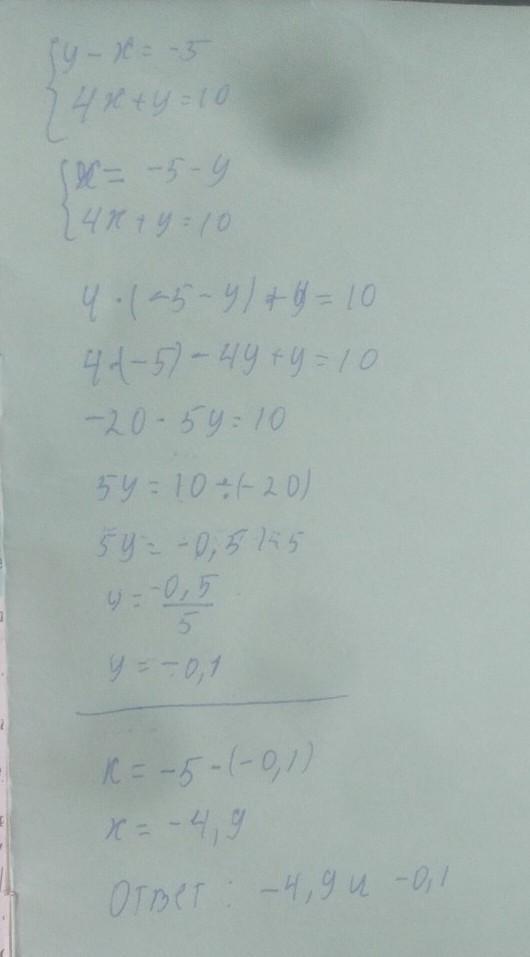 {y - x = -5
4x + y = 10
{x = -5 - y
4x + y = 10
4 · (-5 - y) + y = 10
4·(-5) - 4y + y = 10
-20 - 5y = 10
5y = 10 ÷ (-20)
5y = -0,5 | ÷ 5
y = -0,5/5
y = -0,1
x = -5 - (-0,1)
x = -4,9
Ответ: -4,9 и -0,1